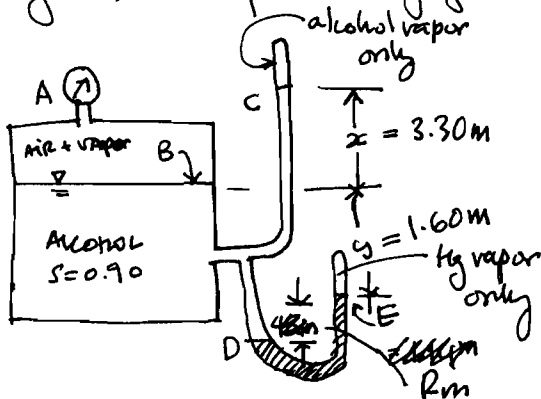 alcohol vapor
only
A
C
x = 3.30m
AIR + VAPOR
B
y = 1.60m
Alcohol
S=0.90
Hg vapor
only
E
D
Rm